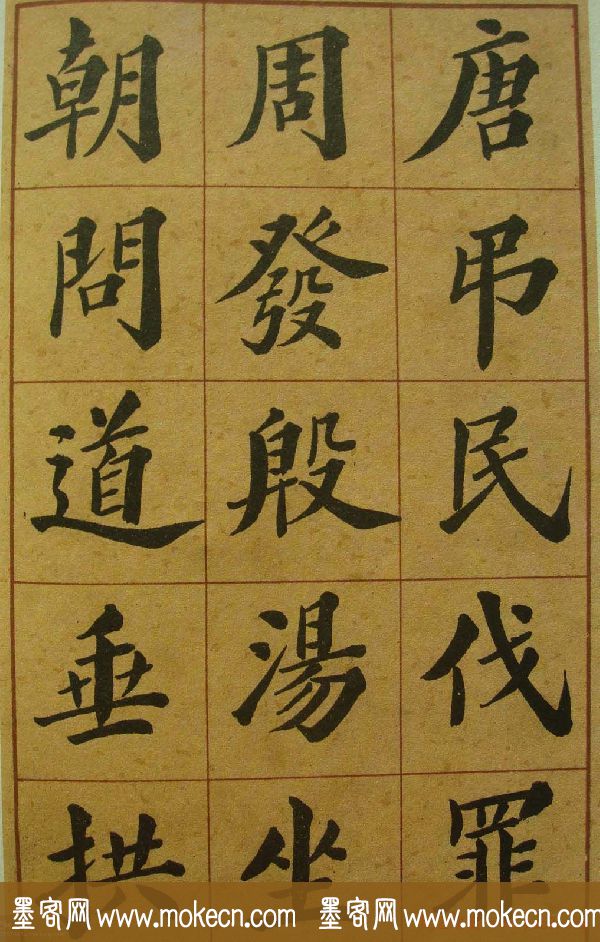 唐弔民伐罪
周發殷湯坐
朝問道垂拱
墨客网 www.mokecn.com 墨客网 www.mokecn.com